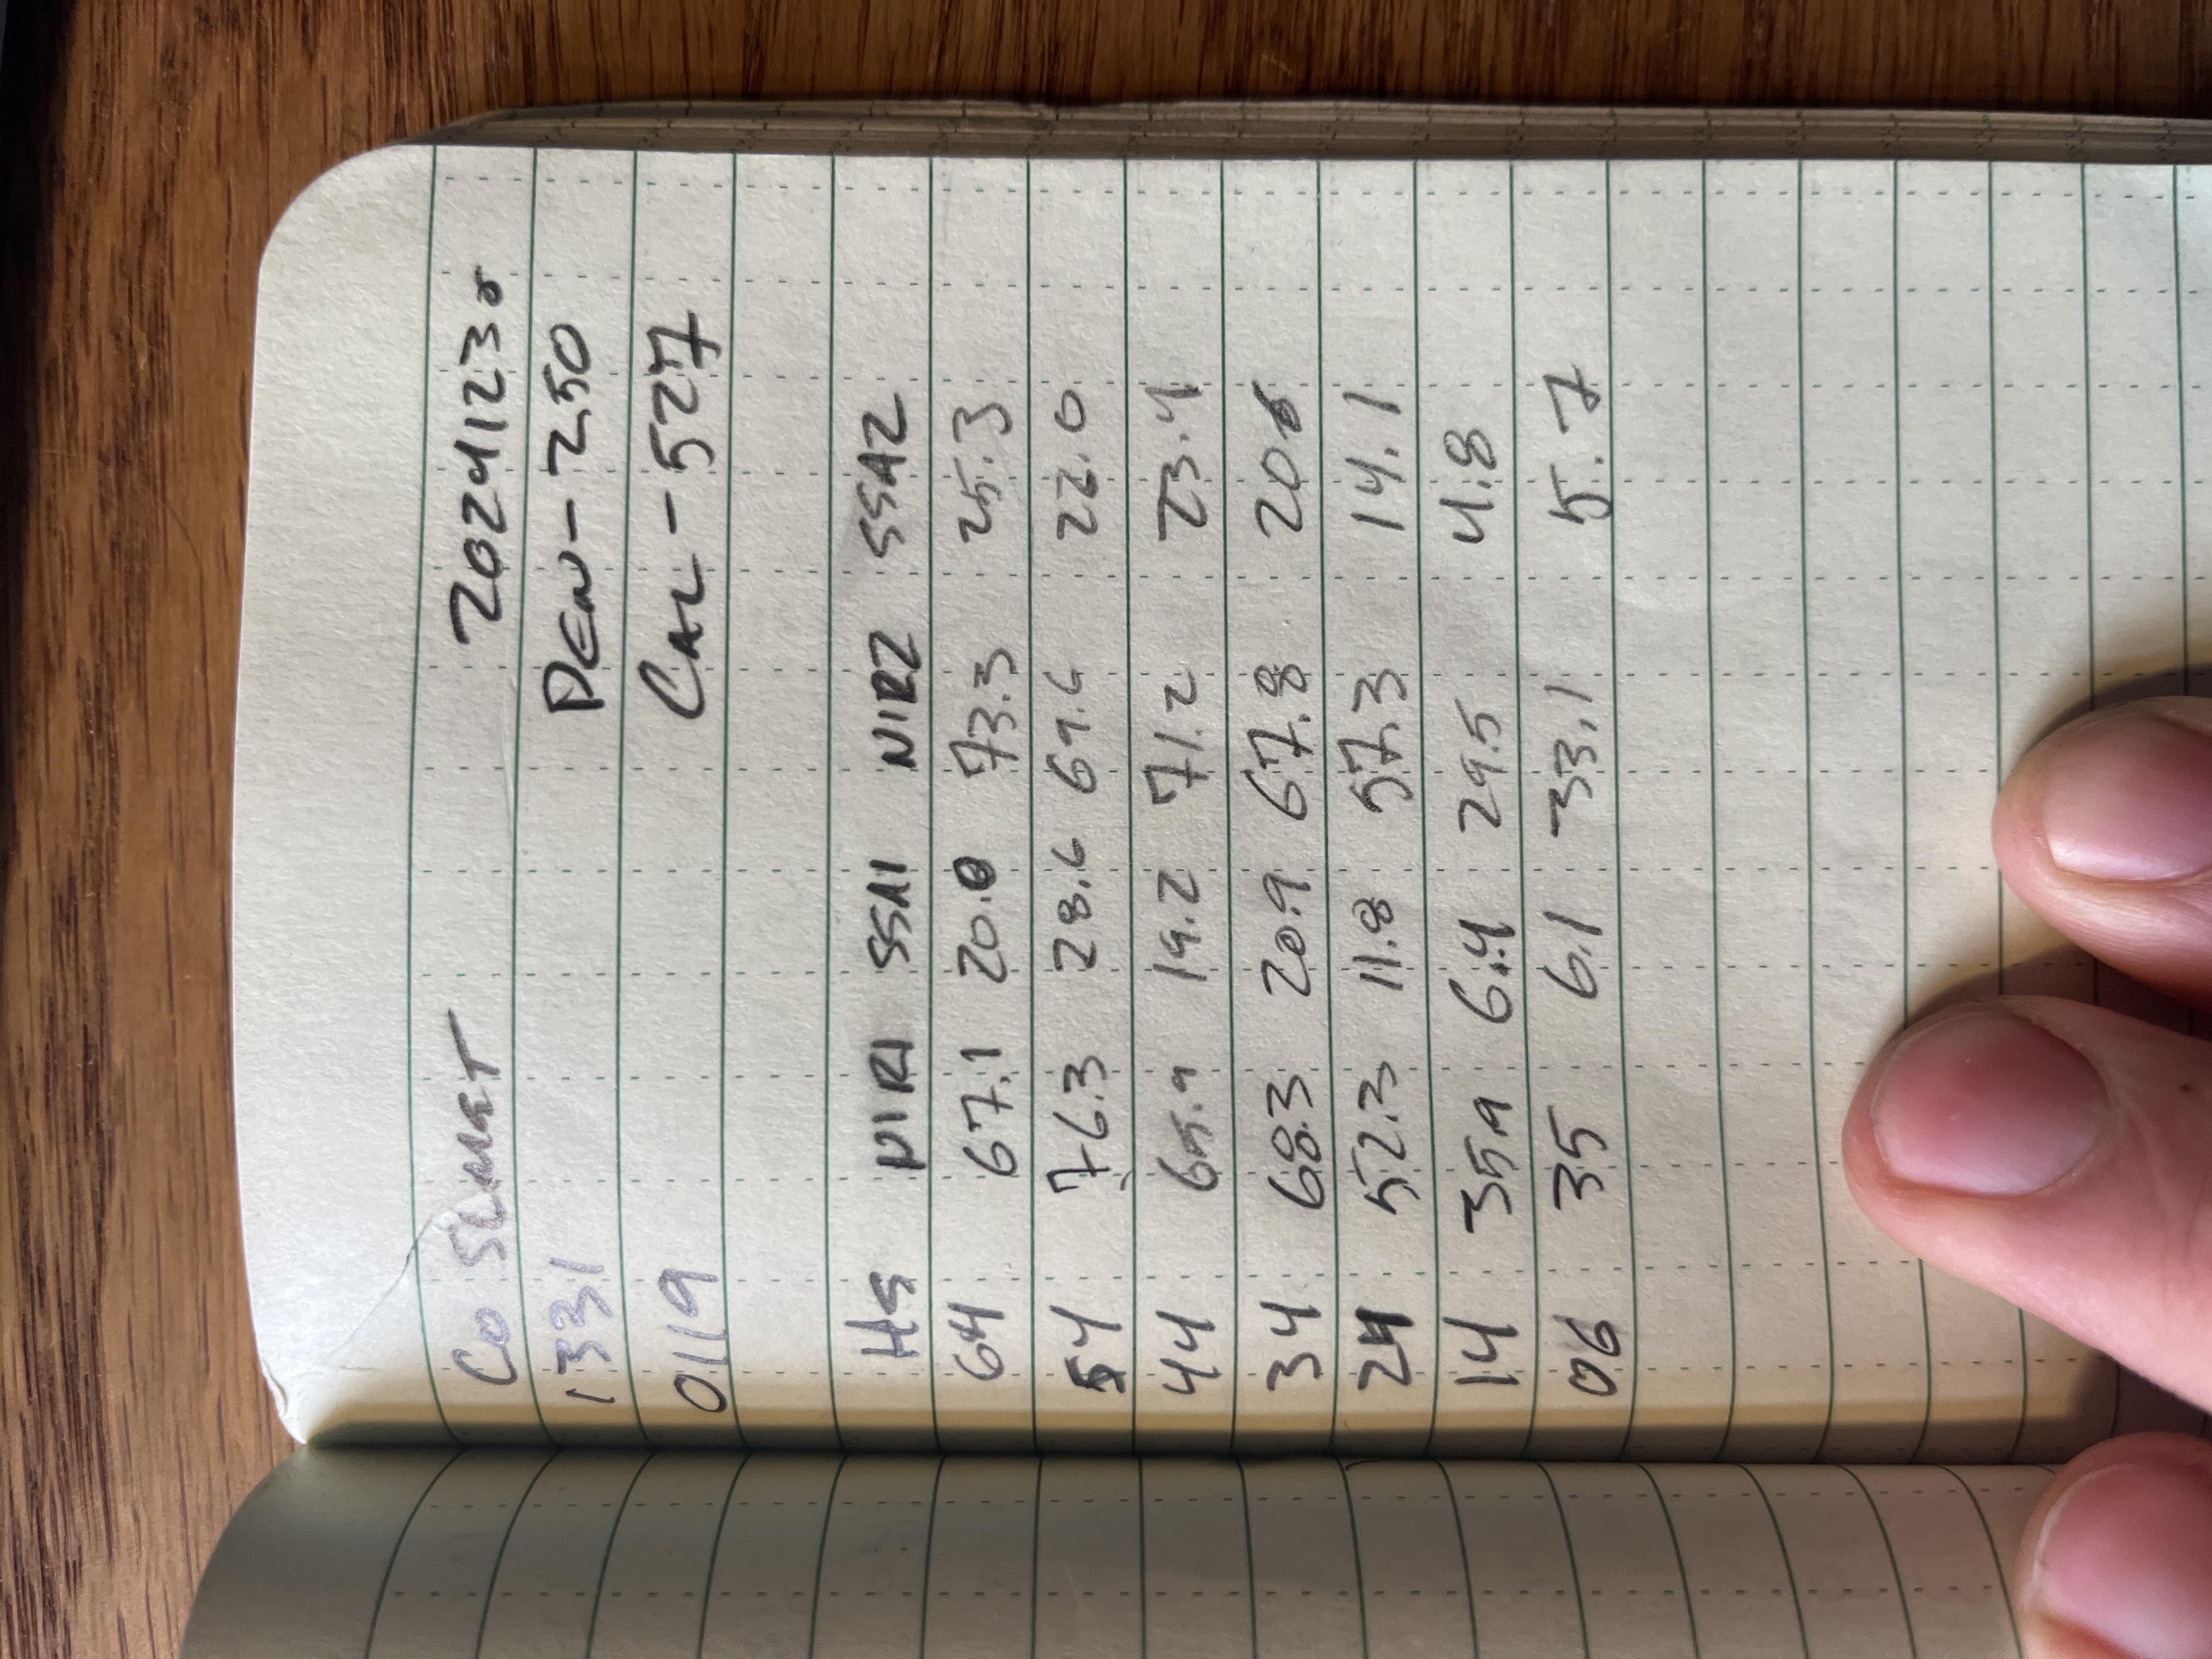 CO SLMET 20241230
1331 DEN-250
0119 CAL-527
HS NIR1 SSA1 NIR2 SSA2
64 67.1 20.0 73.3 25.3
54 76.3 28.6 69.6 22.0
44 65.9 19.2 71.2 23.4
34 68.3 20.9 67.8 20.6
24 52.3 11.8 57.3 14.1
14 35.9 6.4 29.5 4.8
06 35 6.1 33.1 5.7